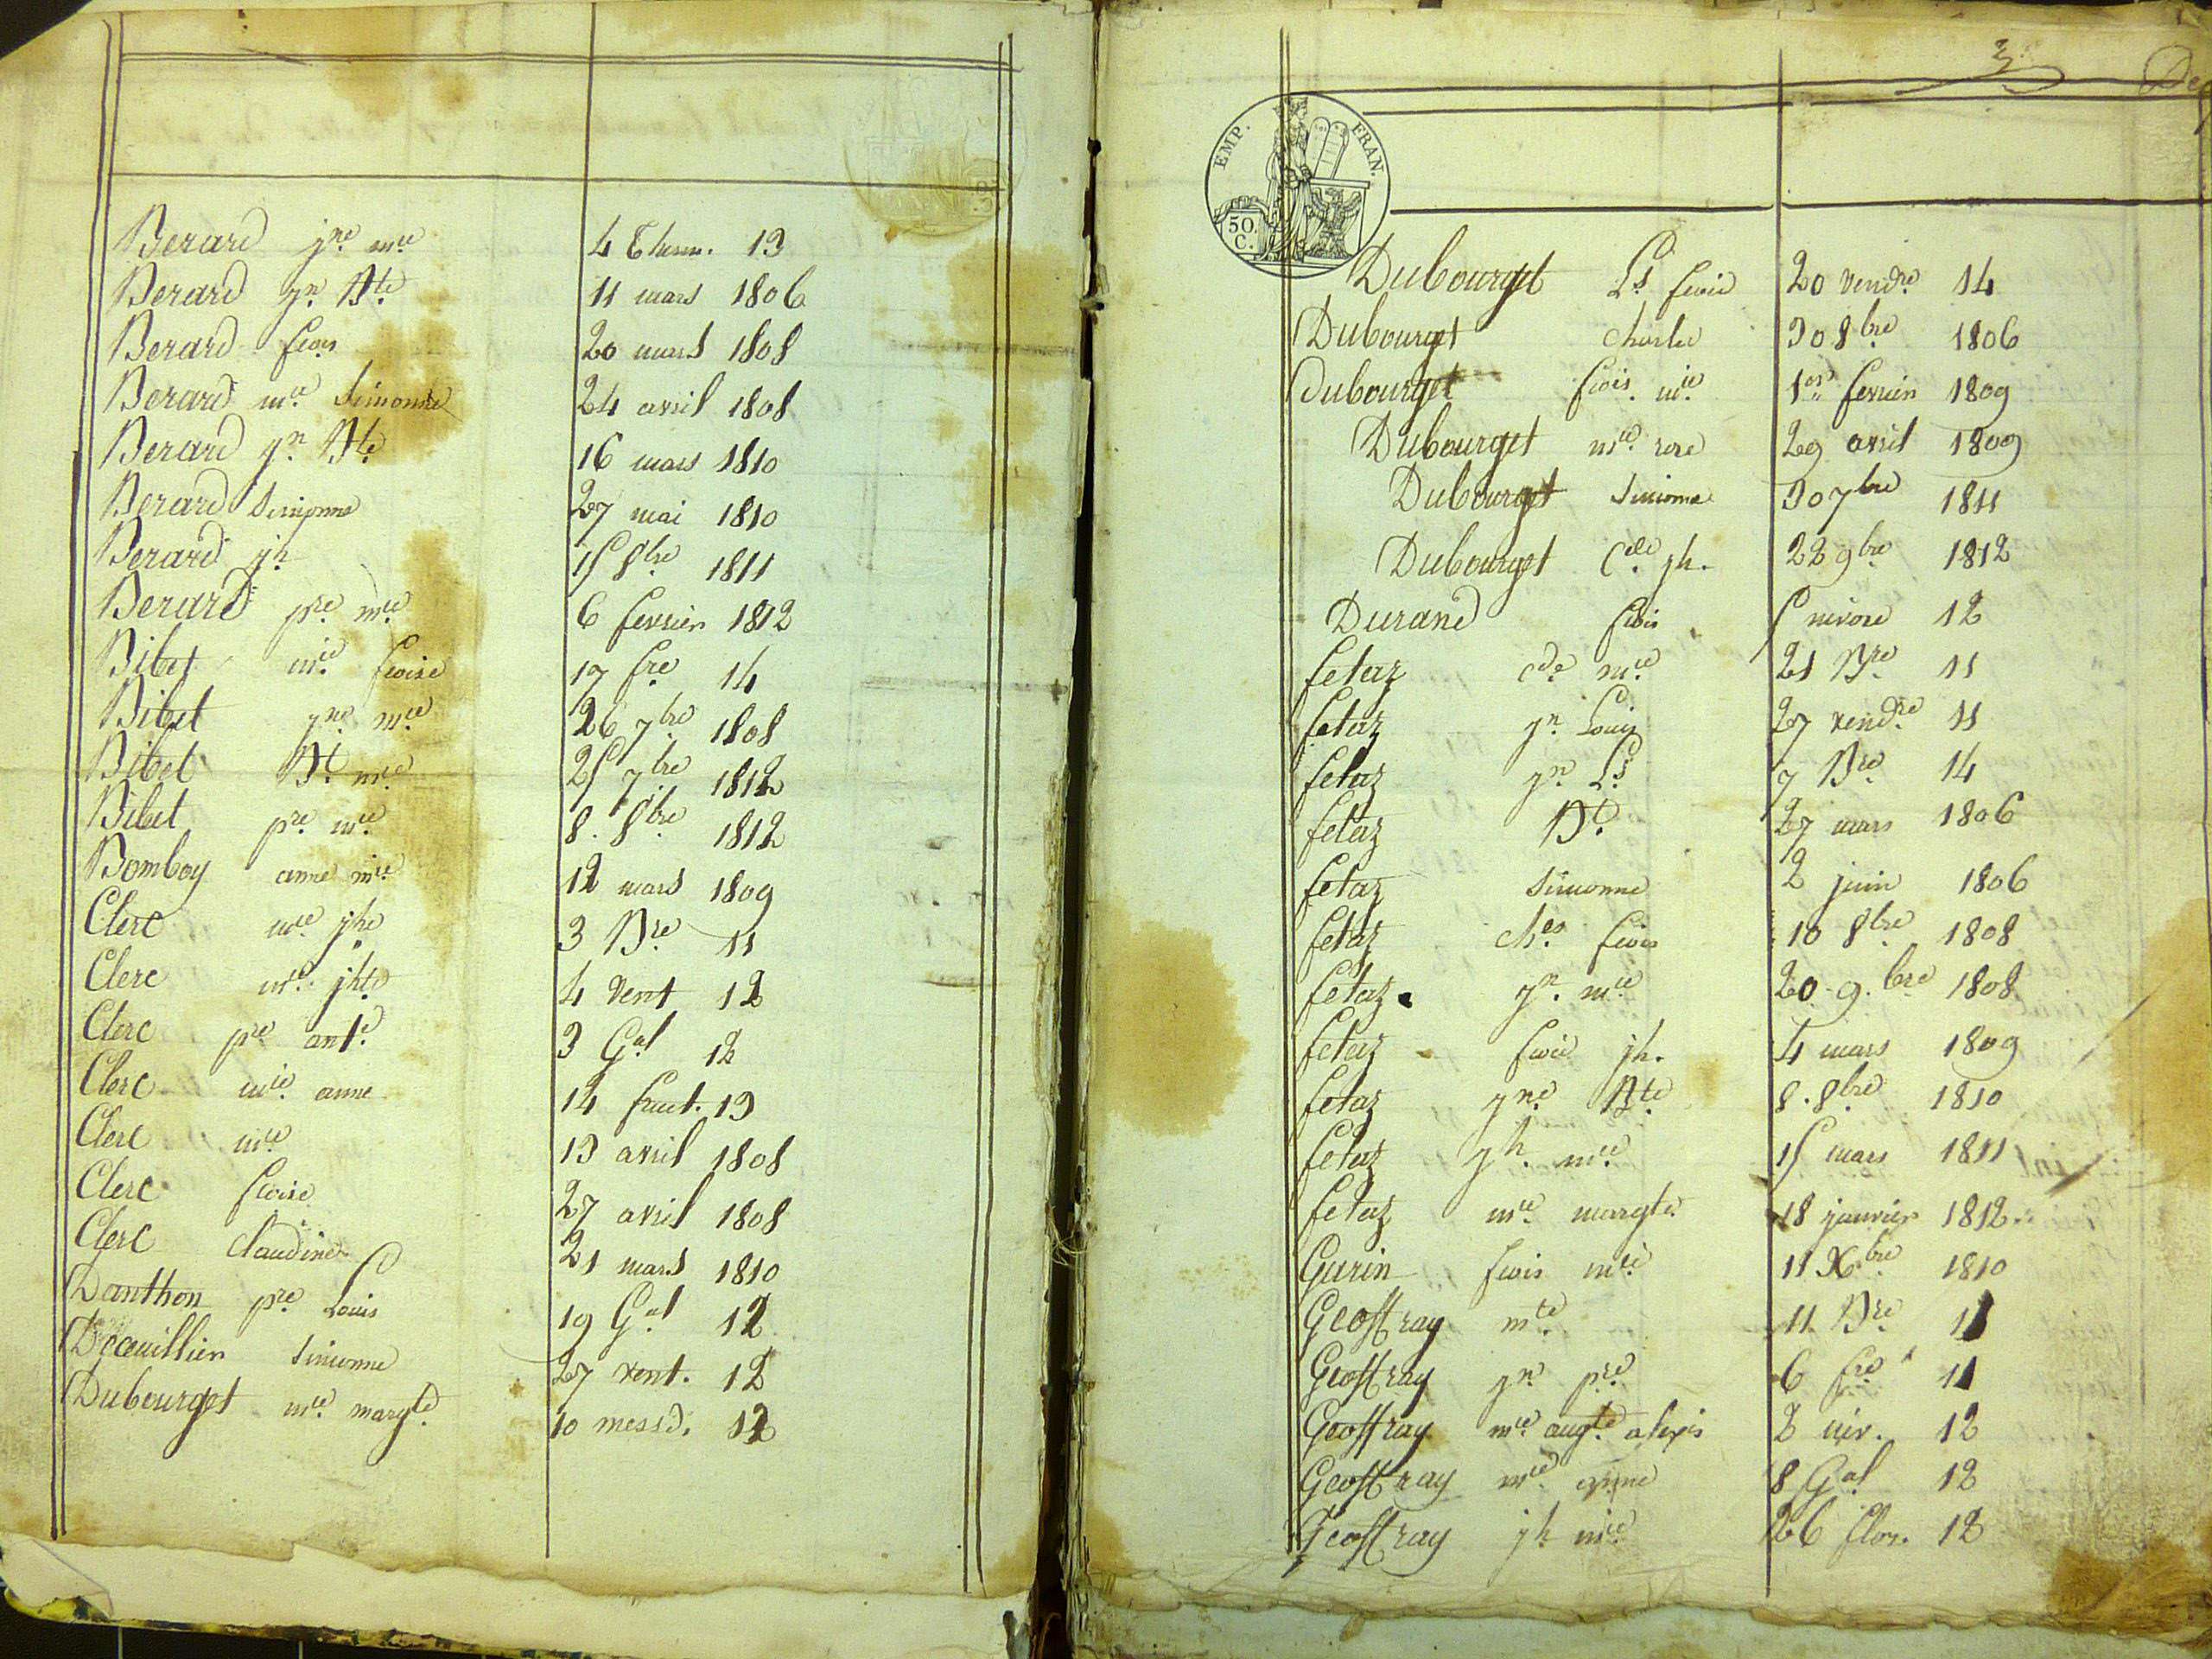 Berard jne mie 4 Therm. 13
Berard jn Bte 11 mars 1806
Berard fcois 20 mars 1808
Berard mie Simonne 24 avril 1808
Berard jn Bte 16 mars 1810
Berard Simonne 27 mai 1810
Berard jh 15 8bre 1811
Berard pre mie 6 fevrier 1812
Bibet mie fcoise 17 fre 14
Bibet jne mie 26 7bre 1808
Bibet Bt mie 25 7bre 1812
Bibet pre mie 8. 8bre 1812
Bomboy anne mie 12 mars 1809
Clerc mie jhe 3 Bre 11
Clerc mie jhte 4 vent 12
Clerc pre ante 3 Gal 12
Clerc mie anne 14 fruct. 13
Clerc mie 13 avril 1808
Clerc fcoise 27 avril 1808
Clerc Claudine 21 mars 1810
Danthon pre Louis 19 Gal 12
Simonne 27 vent. 12
Dubourget mie margte 10 messd. 12
3
EMP. FRAN.
50. C.
Dubourget Ls fcois 20 vendre 14
Dubourget Charles 30 8bre 1806
Dubourget fcois. mie 1er fevrier 1809
Dubourget mie rose 29 avril 1809
Dubourget Simonne 30 7bre 1811
Dubourget Cde jh. 22 9bre 1812
Durand fcois 5 nivose 12
fetaz cde mie 21 Bre 11
fetaz jn Louis 27 vendre 11
fetaz jn Ls 7 Bre 14
fetaz Bt 27 mars 1806
fetaz Simonne 2 juin 1806
fetaz Chles fcois 10 8bre 1808
fetaz jn. mie 20 9.bre 1808
fetaz fcois jh. 4 mars 1809
fetaz jne Bte 8. 8bre 1810
fetaz jh mie 15 mars 1811
fetaz mie margte 18 janvier 1812
Gurin fcois mie 11 Xbre 1810
Geoffray mie 11 Bre 11
Geoffray jn pre 6 fre 11
Geoffray mie augte alexis 2 niv. 12
Geoffray mie anne 8 Gal 12
Geoffray jh mie 26 flor. 12